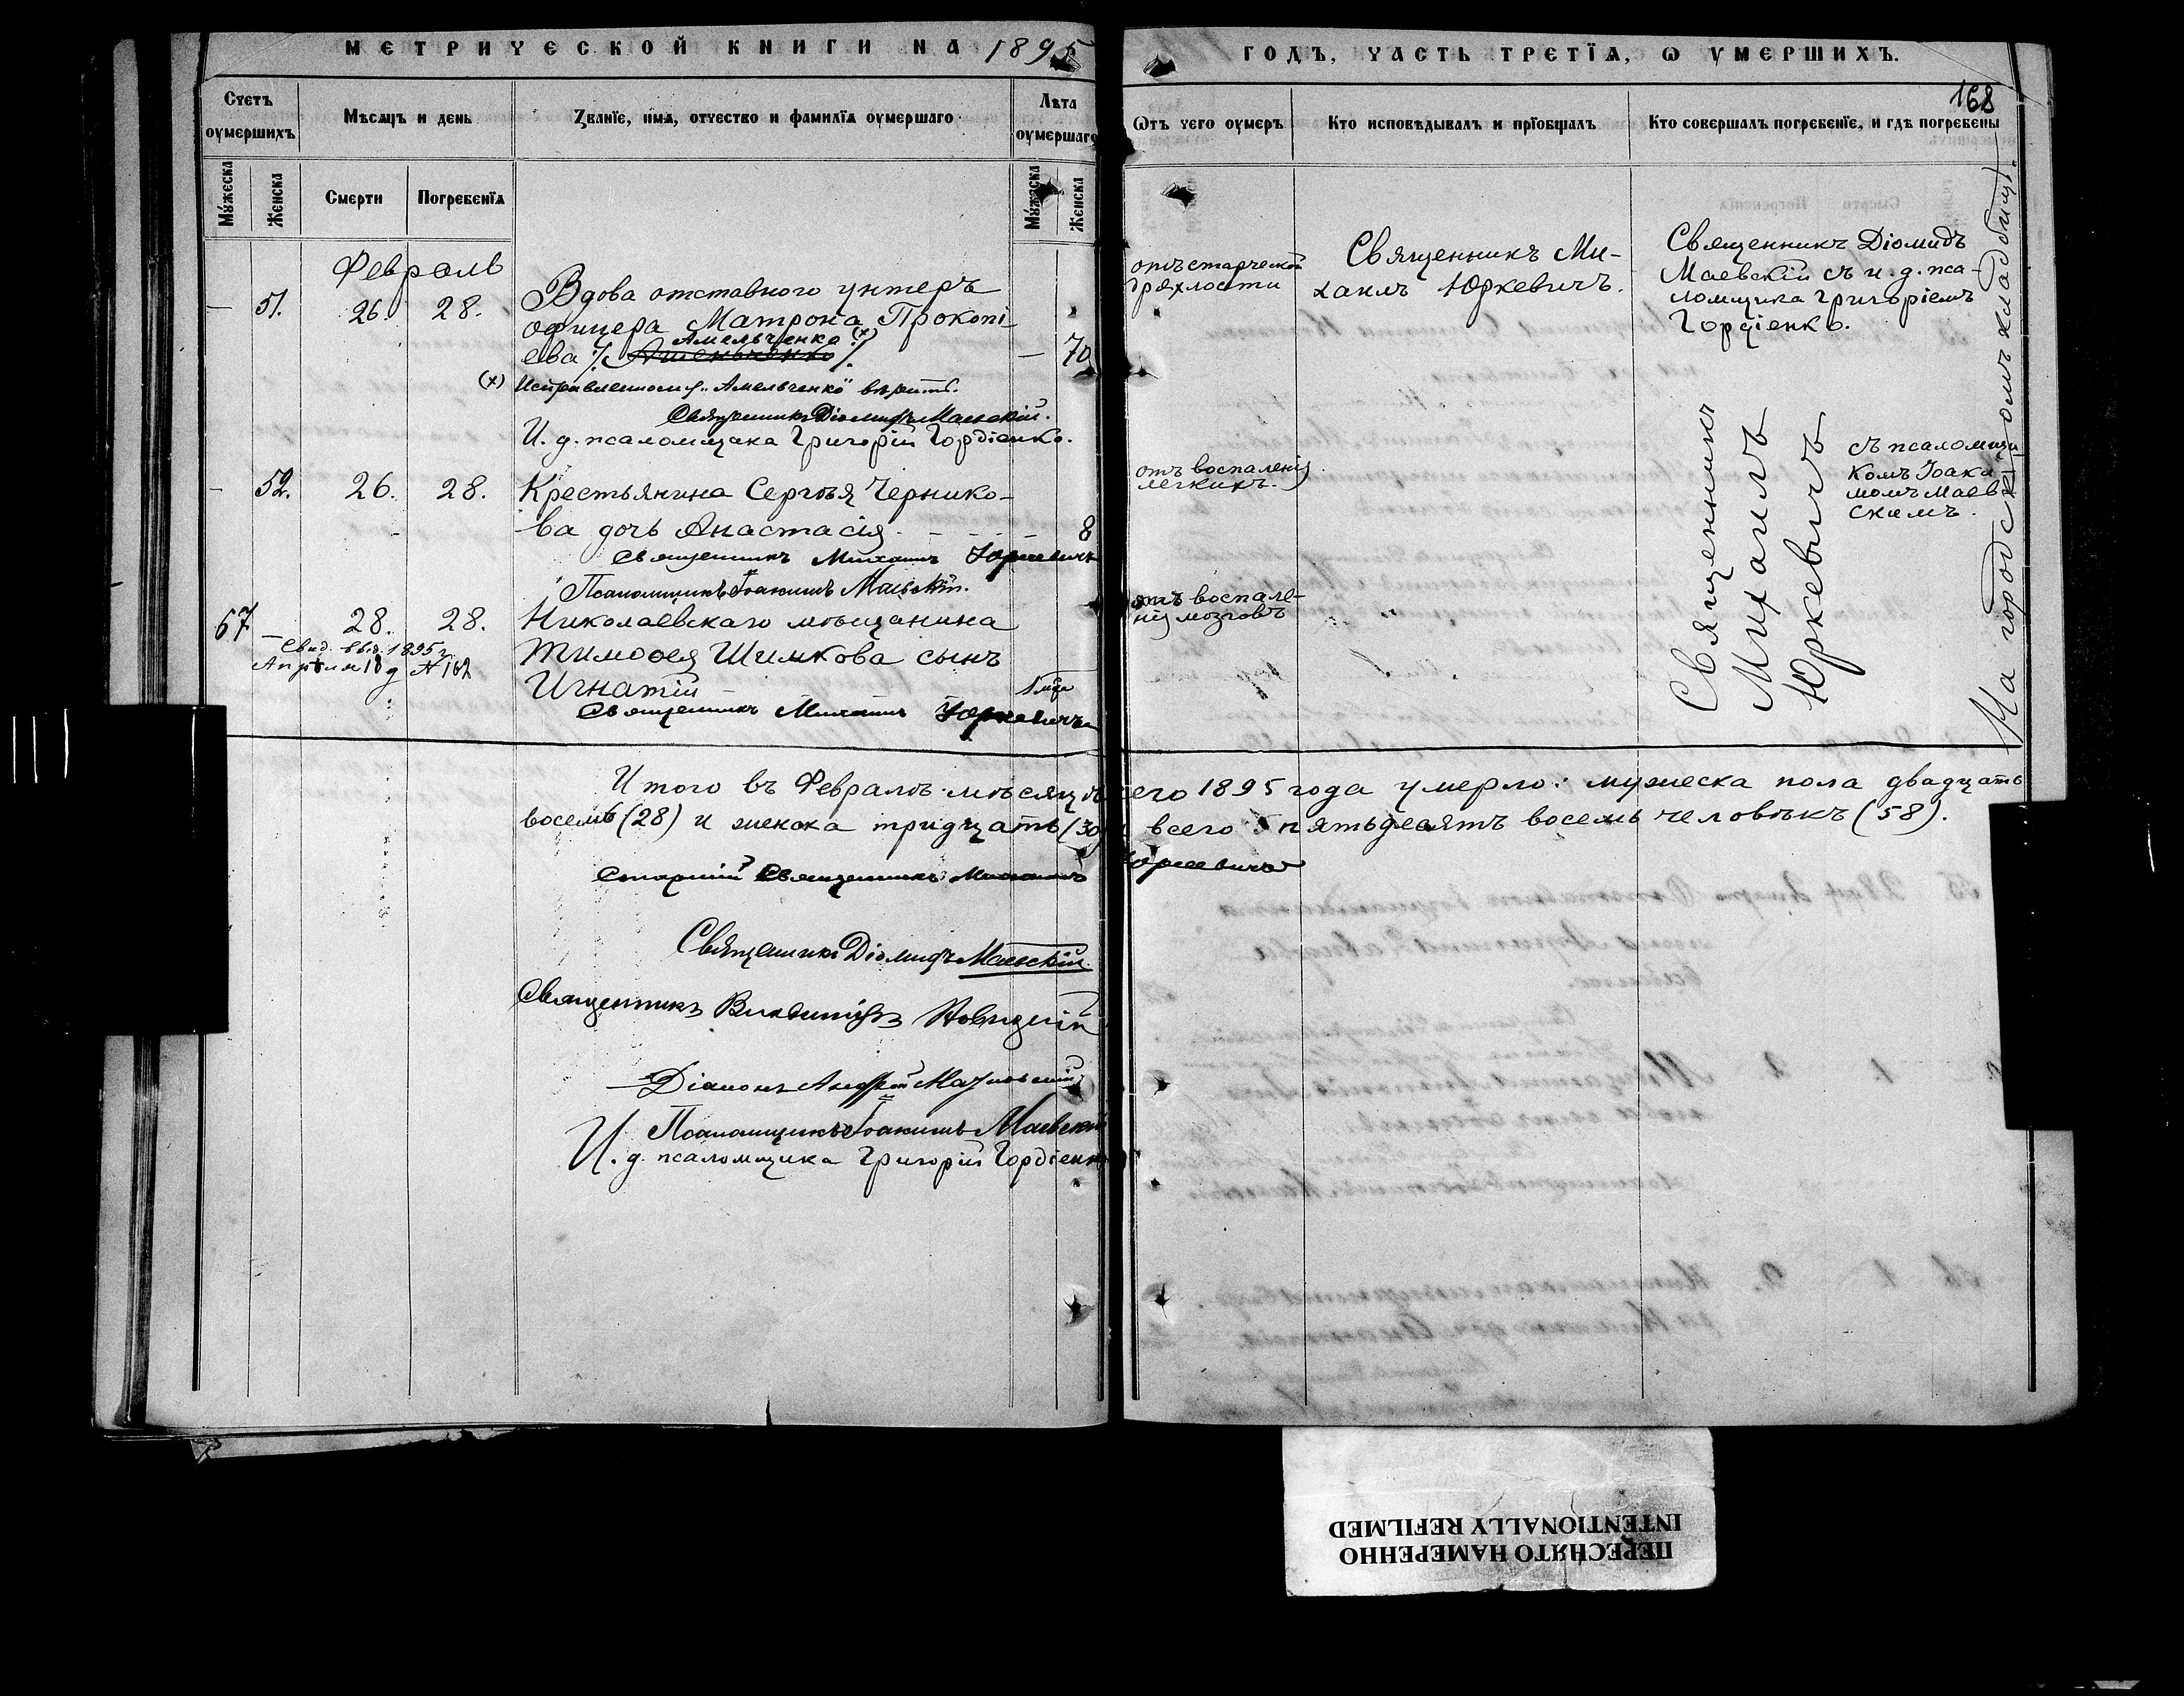 МЕТРИЧЕСКОЙ КНИГИ НА 1895
ГОДЪ, ЧАСТЬ ТРЕТІЯ, Ѡ УМЕРШИХЪ.
168
Счетъ оумершихъ
Мѣсяцъ и день
Званїе, имя, отчество и фамилїя оумершаго
Лѣта оумершаго
Ѿтъ чего оумеръ
Кто исповѣдывалъ и прїобщалъ
Кто совершалъ погребенїе, и гдѣ погребены
Мужеска
Женска
Смерти
Погребенїя
Мужеска
Женска
Февраль
— 51. 26. 28. Вдова отставного унтеръ
офицера Матрона Прокопі
Амельченко (х)
ева
— 70
(х) Исправленному „Амельченко" вѣрить.
Священникъ Діомидъ Маевскій.
И. д. псаломщика Григорій Гордіенко.
отъ старческой
дряхлости
Священникъ Ми-
хаилъ Юркевичъ.
Священникъ Діомидъ
Маевскій съ и. д. пса-
ломщика Григоріемъ
Гордіенко.
— 52. 26. 28. Крестьянина Сергѣя Чернико-
ва дочь Анастасія. 8
Священникъ Михаилъ Юркевичъ
Псаломщикъ Іоакимъ Маевскій.
отъ воспаленія
легкихъ.
Священникъ
Михаилъ
Юркевичъ
съ псаломщи
комъ Іоаки
момъ Маев
скимъ.
На городскомъ кладбищѣ.
57 — 28. 28. Николаевскаго мѣщанина
Свид. выд. 1895 г.
Апрѣля 18 д № 162
Тимоѳея Шимкова сынъ
Игнатій 1 мѣс
Священникъ Михаилъ Юркевичъ
отъ воспале-
нія мозговъ
Итого въ Февралѣ мѣсяцѣ сего 1895 года умерло: мужеска пола двадцать
восемь (28) и женска тридцать (30) всего пятьдесятъ восемь человѣкъ (58).
Старшій Священникъ Михаилъ Юркевичъ
Священникъ Діомидъ Маевскій.
Священникъ Новицкій
Діаконъ Андрей
Псаломщикъ Іоакимъ Маевскій
И. д. псаломщика Григорій Гордіенко
ПЕРЕСНЯТО НАМЕРЕННО
INTENTIONALLY REFILMED